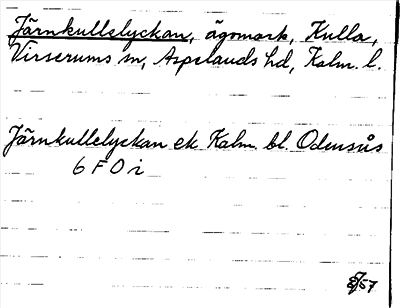 Järnkullelyckan, ägomark, Kulla,
Virserums sn, Aspelands hd, Kalm. l.
Järnkullelyckan ek Kalm. bl. Odensås
6 F 0 i
57